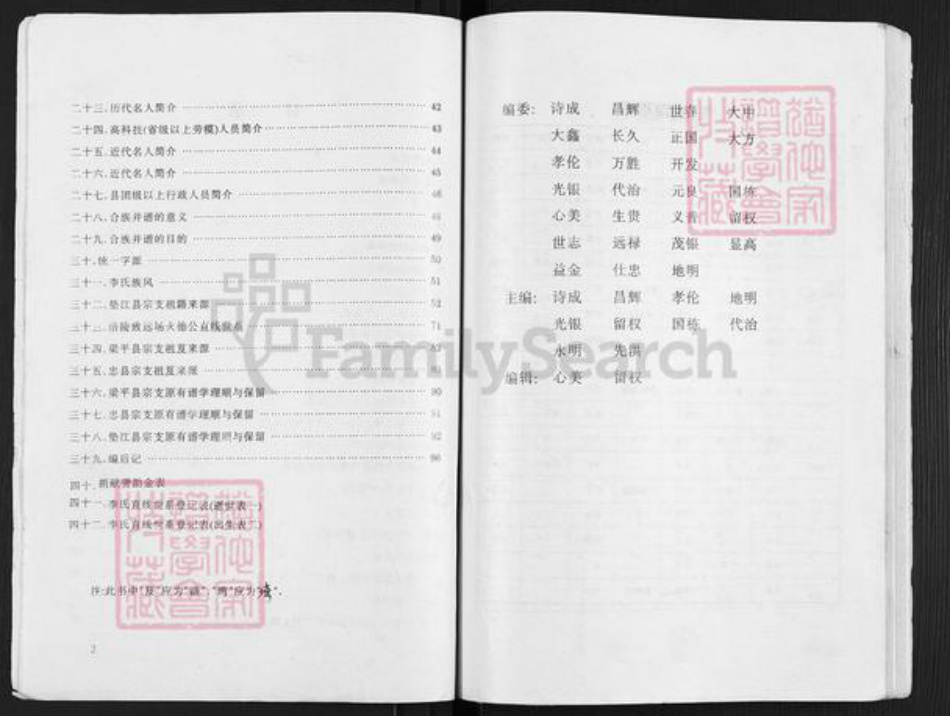 二十三.历代名人简介 …… 42
二十四.高科技(省级以上劳模)人员简介 …… 43
二十五.近代名人简介 …… 44
二十六.近代名人简介 …… 45
二十七.县团级以上行政人员简介 …… 46
二十八.合族并谱的意义 …… 48
二十九.合族并谱的目的 …… 49
三十.统一字派 …… 50
三十一.李氏族风 …… 51
三十二.垫江县宗支祖籍来源 …… 52
三十三.涪陵致远场火德公直线世系 …… 71
三十四.梁平县宗支祖厦来源
三十五.忠县宗支祖厦来源
三十六.梁平县宗支原有谱学理顺与保留 …… 90
三十七.忠县宗支原有谱学理顺与保留 …… 91
三十八.垫江县宗支原有谱学理顺与保留 …… 92
三十九.编后记 …… 96
四十.捐献赞助金表
四十一.李氏直线世系登记表(逝世表一)
四十二.李氏直线世系登记表(出生表二)
注:此书中
2
编委: 诗成 昌辉 世春 大中
大鑫 长久 正国 大方
孝伦 万胜 开发
光银 代治 元良 国栋
心美 生贵 义 留权
世志 远禄 茂银 显高
益金 仕忠 地明
主编: 诗成 昌辉 孝伦 地明
光银 留权 国栋 代治
永明 先洪
编辑: 心美 留权
FamilySearch